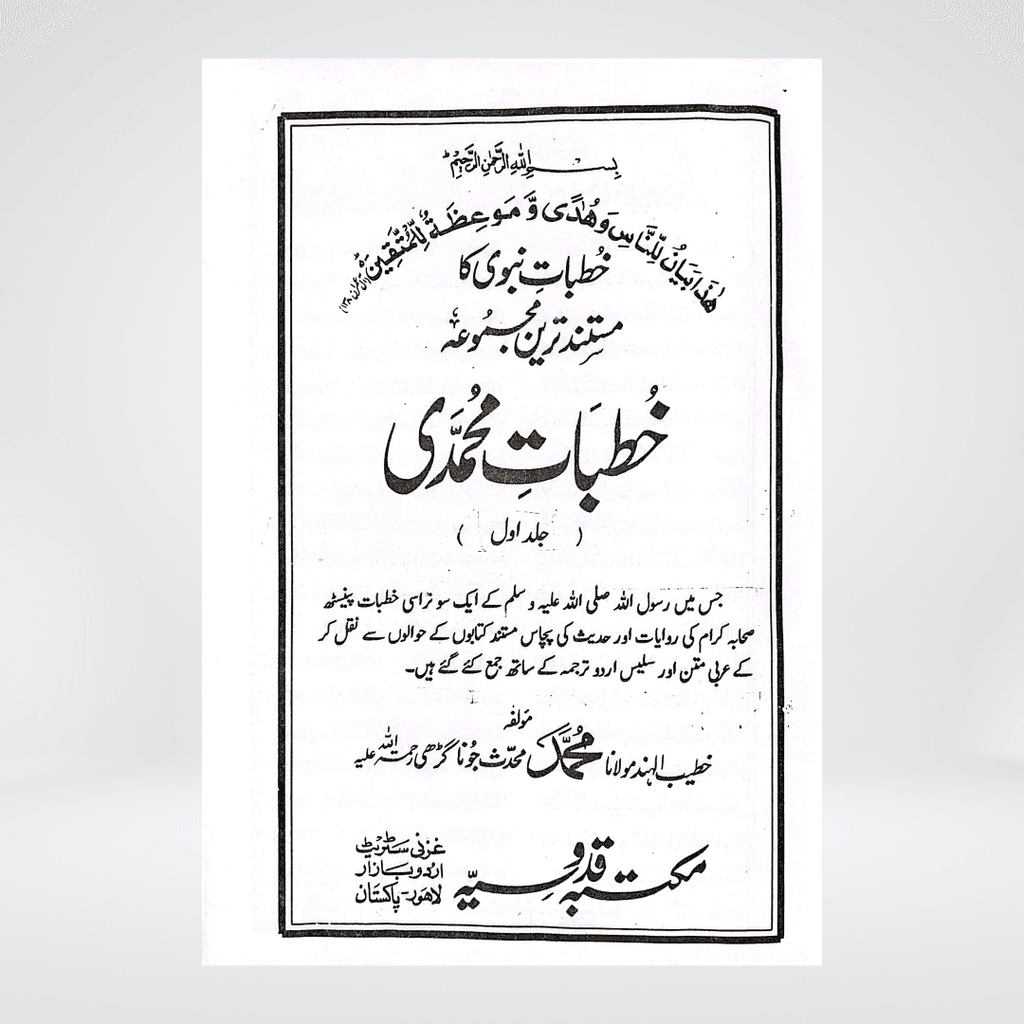 بسم الله الرحمن الرحیم
هٰذَا بَيَانٌ لِّلنَّاسِ وَهُدًى وَّ مَوْعِظَةٌ لِّلْمُتَّقِينَ (آل عمران ۱۳۸)
خُطباتِ نبوی کا
مستند ترین مجموعہ
خُطبَاتِ مُحمَّدی
( جلد اول )
جس میں رسول اللہ صلی اللہ علیہ و سلم کے ایک سو تراسی خطبات پینسٹھ
صحابہ کرام کی روایات اور حدیث کی پچاس مستند کتابوں کے حوالوں سے نقل کر
کے عربی متن اور سلیس اردو ترجمہ کے ساتھ جمع کئے گئے ہیں۔
مؤلفہ
خطیب الہند مولانا مُحَمَّد محدّث جُونا گڑھی رحمۃ اللہ علیہ
مکتبہ قدّوسیّہ
غزنی سٹریٹ
اردو بازار
لاہور - پاکستان